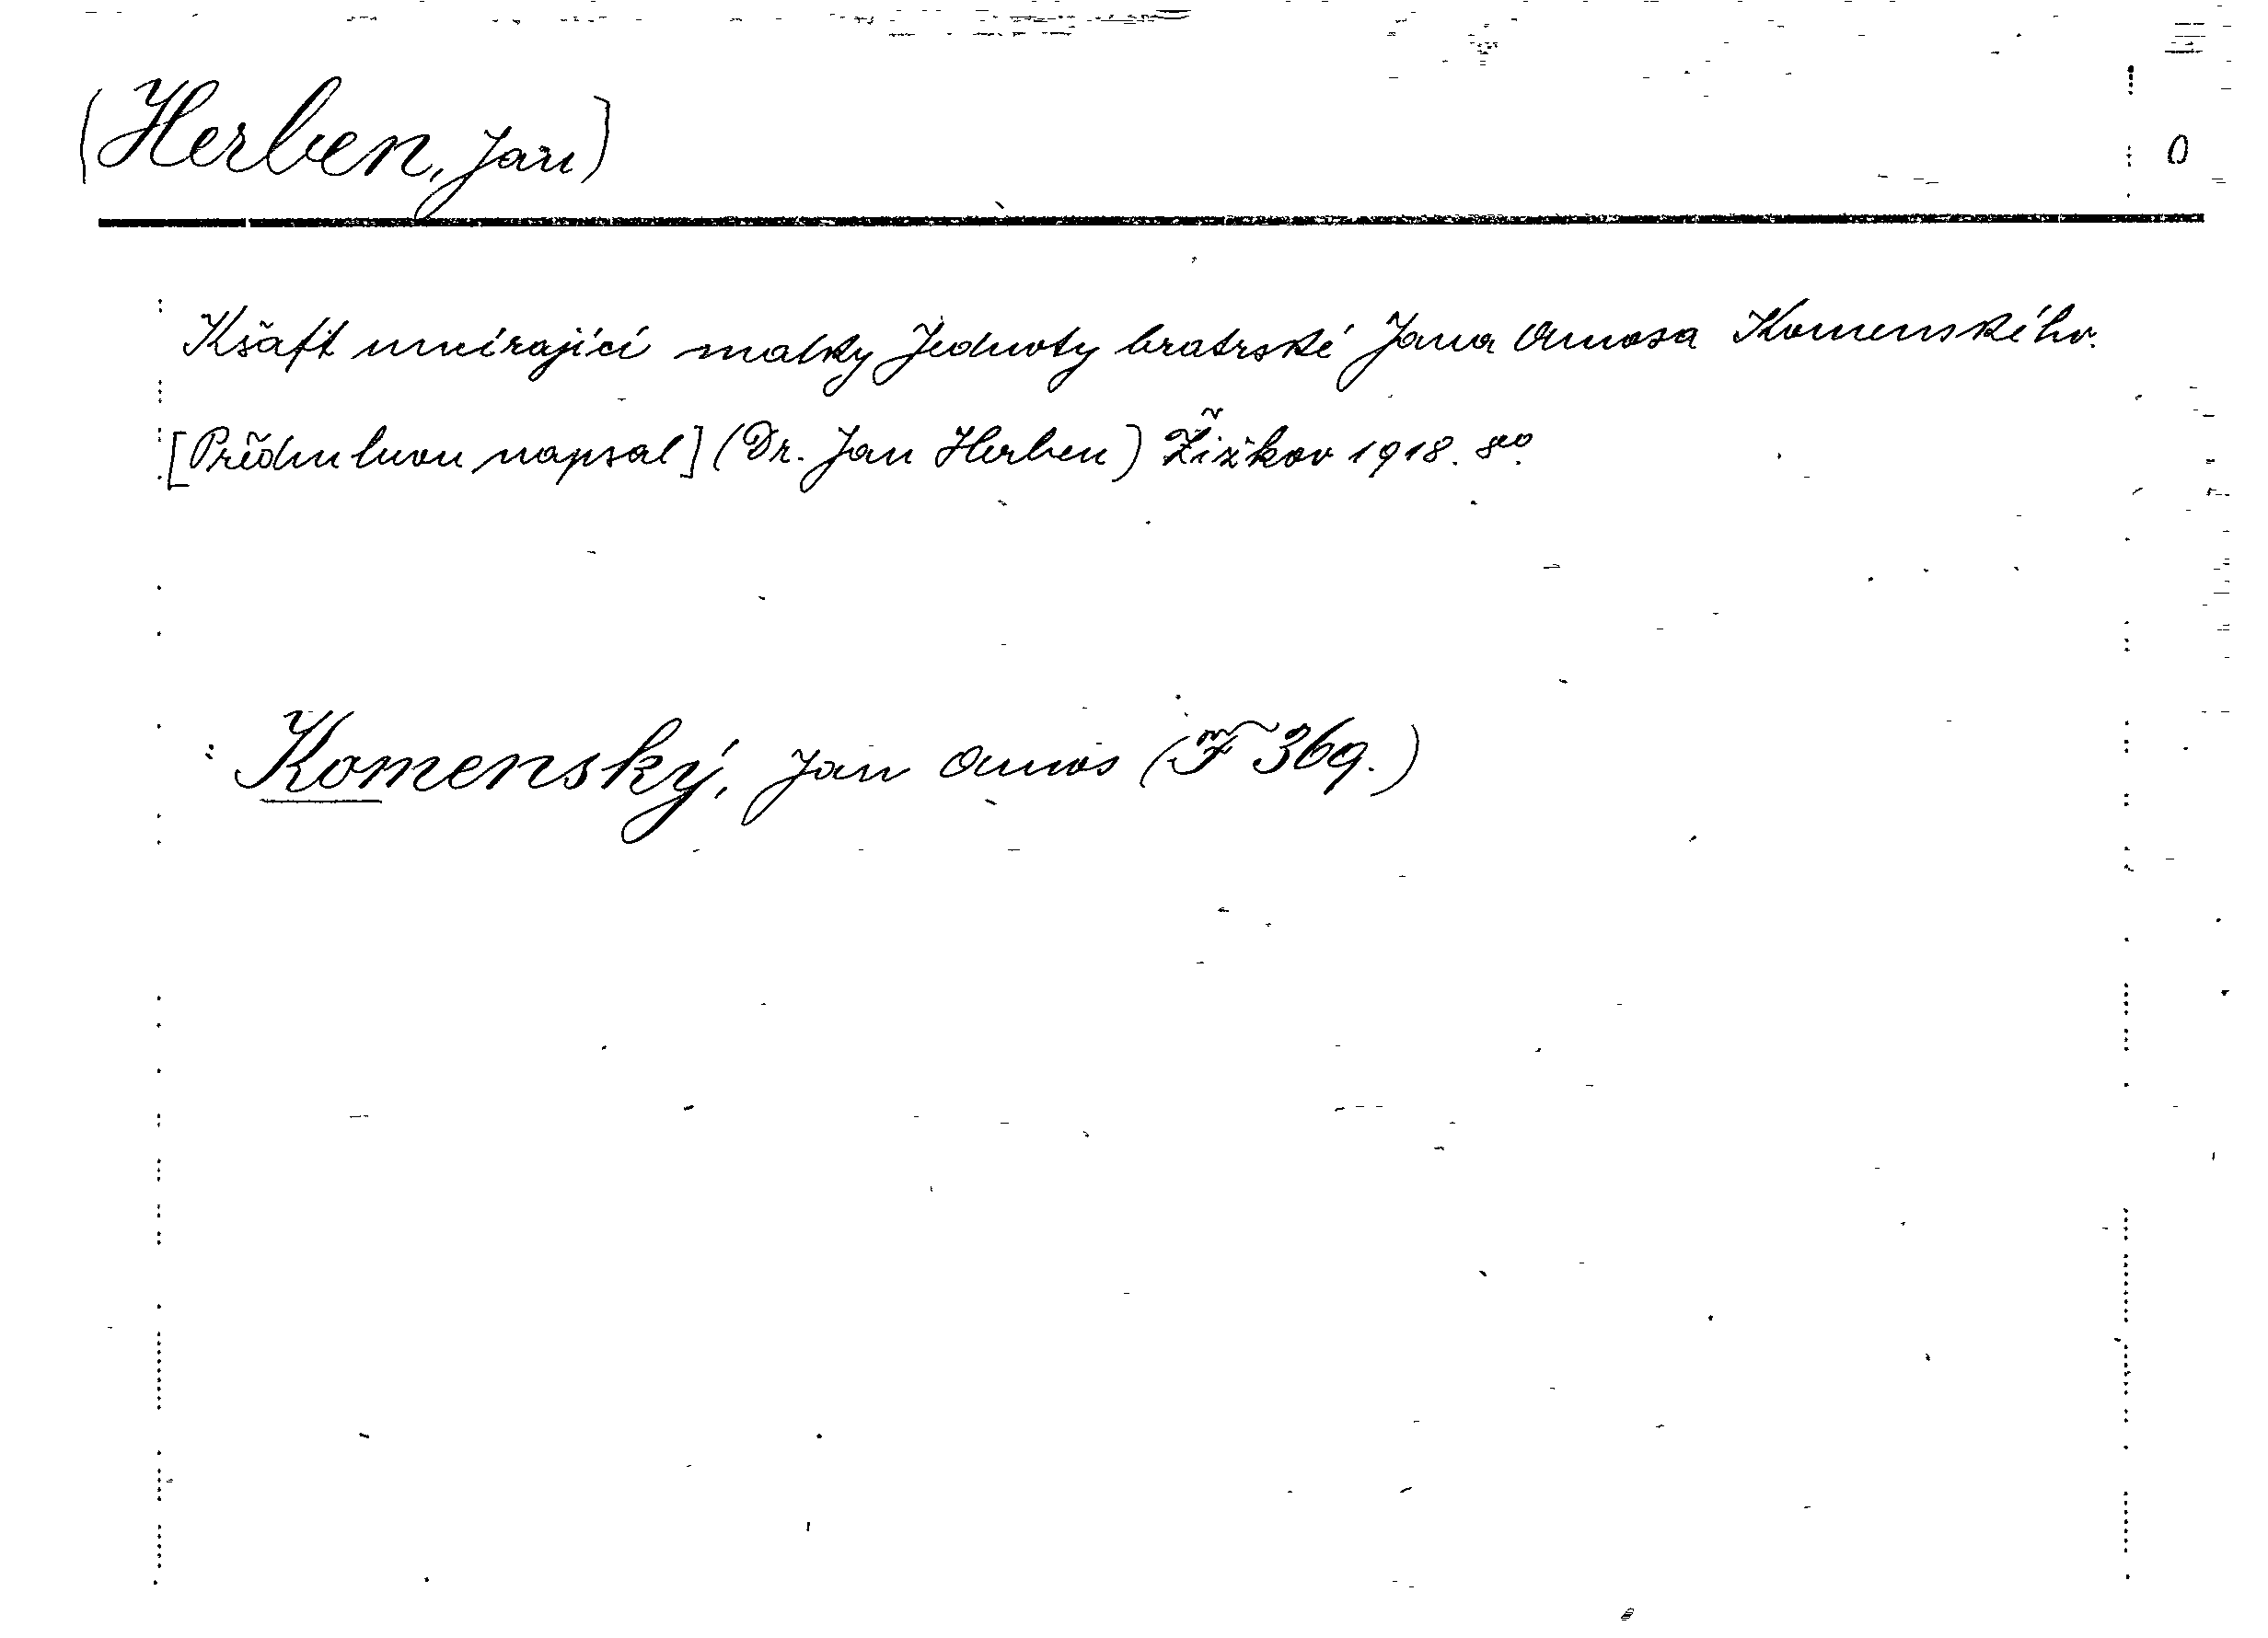 (Herben, Jan) 0
Kšaft umírající matky Jednoty bratrské Jana Amosa Komenského.
[Předmluvou napsal] (Dr. Jan Herben) Žižkov 1918. 8º.
: Komenský, Jan Amos (F 369.)